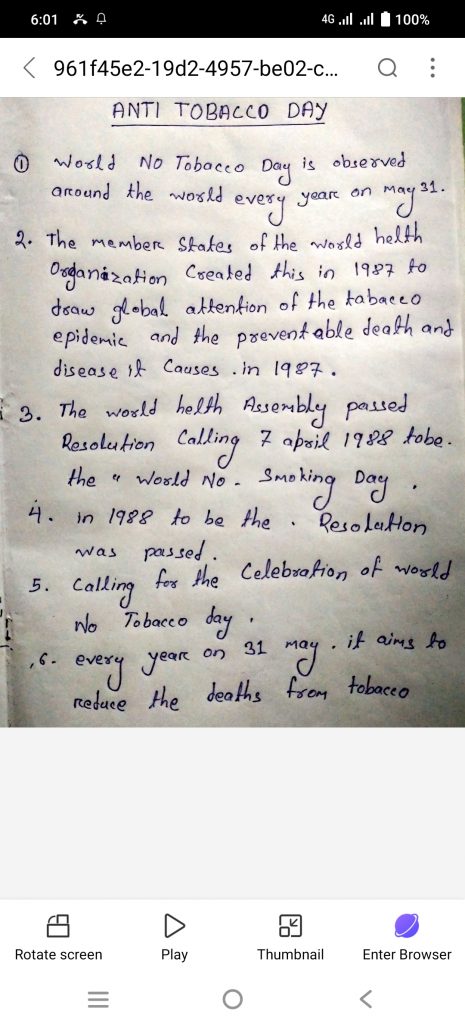 6:01
4G 100%
961f45e2-19d2-4957-be02-c...
ANTI TOBACCO DAY
① World No Tobacco Day is observed
around the world every year on may 31.
2. The member States of the world helth
Organization Created this in 1987 to
draw global attention of the tabacco
epidemic and the preventable death and
disease it Causes . in 1987.
3. The world helth Assembly passed
Resolution Calling 7 april 1988 tobe.
the " World No - Smoking Day .
4. in 1988 to be the . Resolution
was passed .
5. Calling for the Celebration of world
No Tobacco day .
6. every year on 31 may . it aims to
reduce the deaths from tobacco
Rotate screen
Play
Thumbnail
Enter Browser